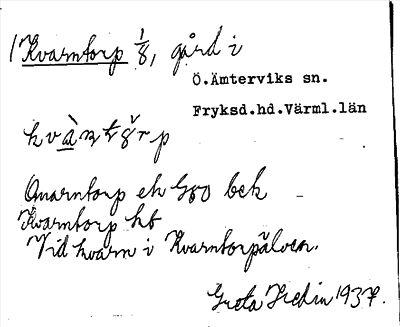 Kvarntorp 1/8, gård i
Ö.Ämterviks sn.
Fryksd.hd.Värml.län
Qvarntorp ek G80 bek
Kvarntorp hb
Vid kvarn i Kvarntorpälven.
Greta Hedin 1937.